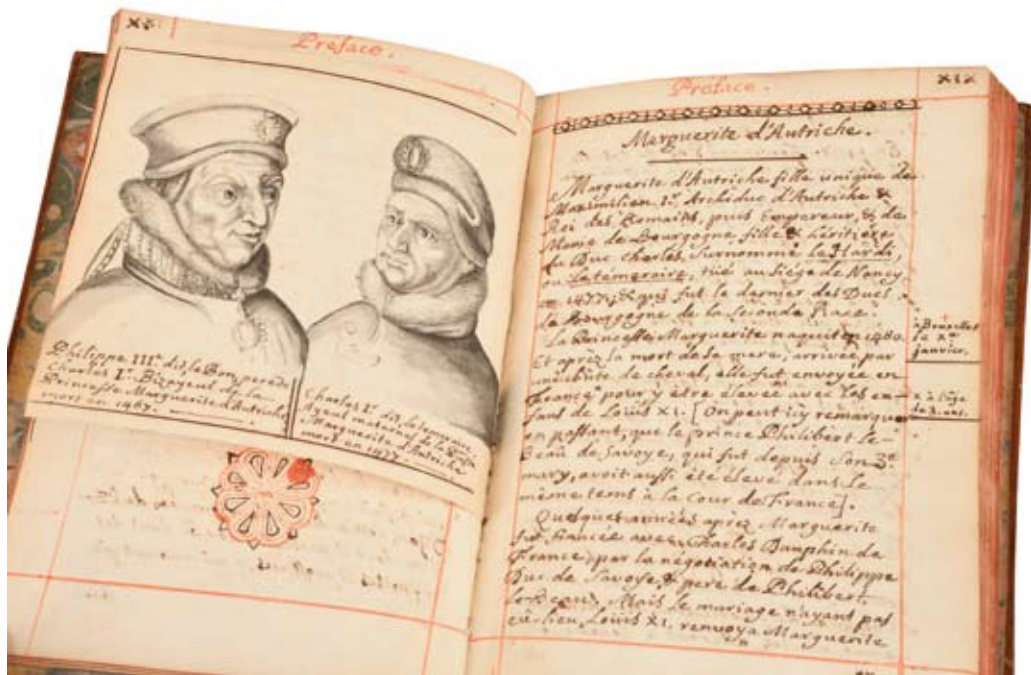 Préface.
Philippe III.e dit le Bon, pere de
Charles I.er Bizayeul de la
Princesse Marguerite d'Autriche,
mort en 1467.
Charles I.er dit le temeraire,
Ayeul maternel de la Psse
Marguerite d'Autriche
mort en 1477.
Préface.
XIX
Marguerite d'Autriche.
Marguerite d'Autriche fille unique de
Maximilien I.er Archiduc d'Autriche &
Roi des Romains, puis Empereur, & de
Marie de Bourgogne fille & héritière
du Duc Charles, Surnommé le Hardi,
ou Le témeraire, tué au Siège de Nancy
en 1477, & qui fut le dernier des Ducs
de Bourgogne de la Seconde Race.
La Princesse Marguerite naquit en 1480.
à Bruxelles
le
janvier.
Et après la mort de sa mere, arrivée par
une chûte de cheval, elle fut envoyée en
France pour y être élevée avec les en-
fans de Loüis XI. [On peut ici remarquer
x à l'âge
de 3. ans.
en passant, que le prince Philibert le-
Beau de Savoye, qui fut depuis Son 2.d
mary, avoit aussi été élevé dans le
même tems à la Cour de France].
Quelques années après Marguerite
fut fiancée avec Charles Dauphin de
France, par la négotiation de Philippe
Duc de Savoye & pere de Philibert
le Beau. Mais le mariage n'ayant pas
eû lieu, Loüis XI. renvoya Marguerite